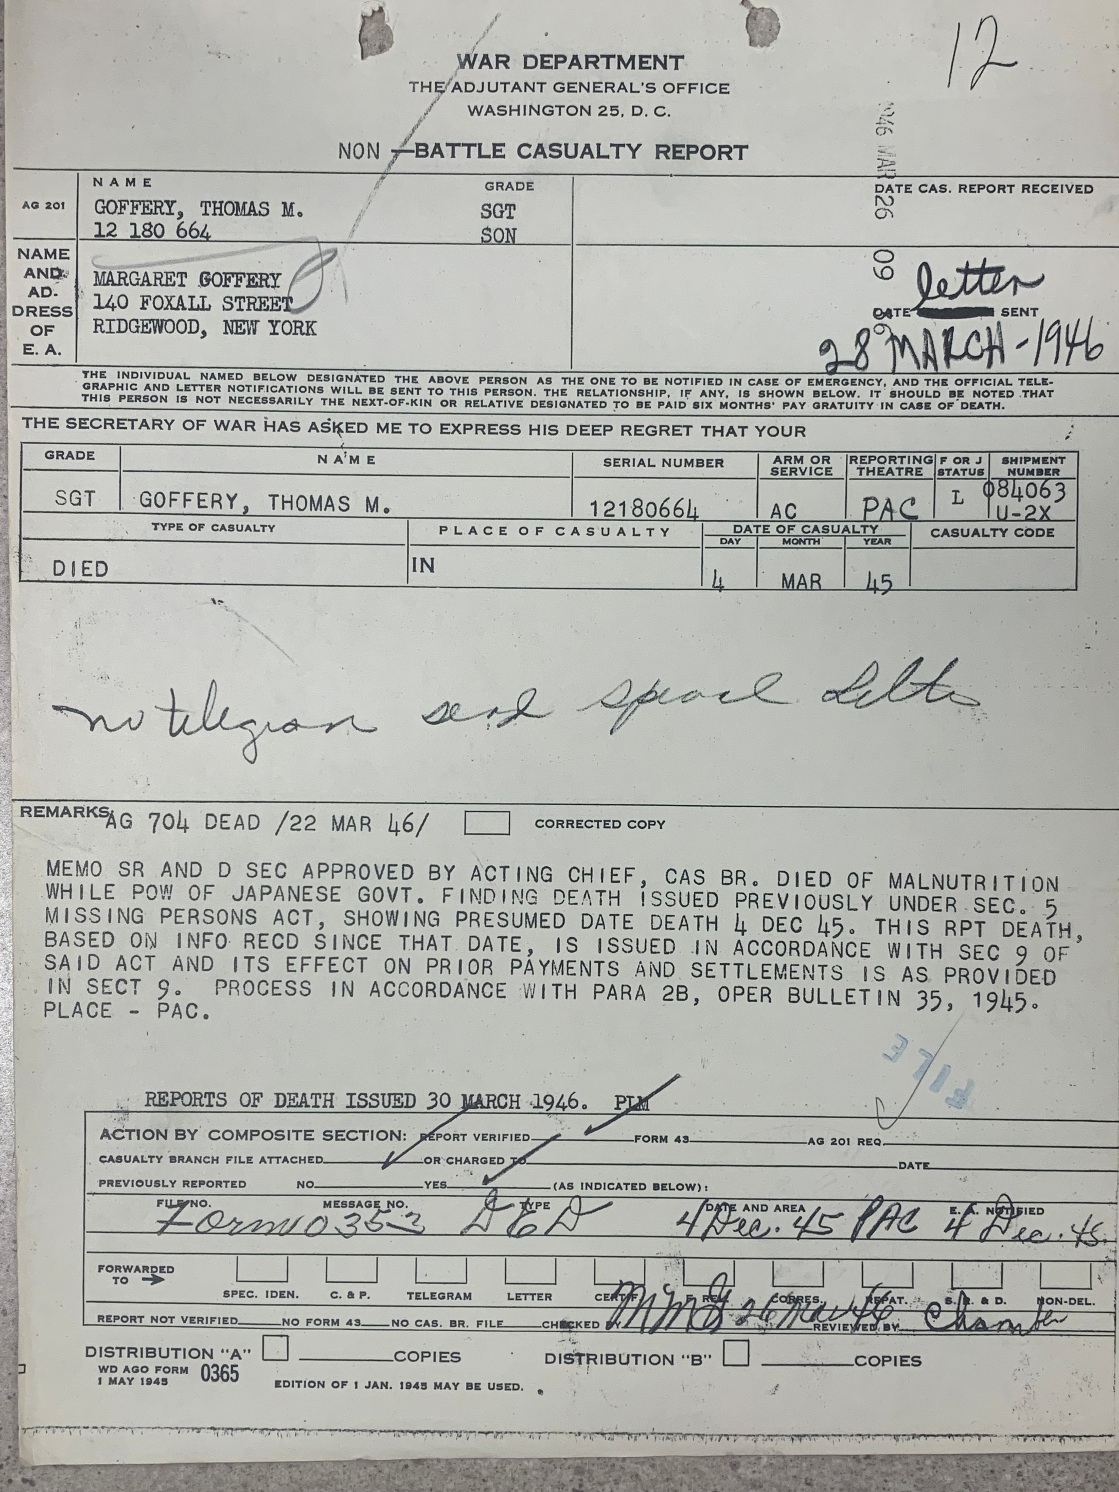 12
WAR DEPARTMENT
THE ADJUTANT GENERAL'S OFFICE
WASHINGTON 25, D. C.
NON —BATTLE CASUALTY REPORT
1946 MAR 26 09
NAME GRADE DATE CAS. REPORT RECEIVED
AG 201 GOFFERY, THOMAS M. SGT
12 180 664 SON
NAME AND AD- DRESS OF E. A.
MARGARET GOFFERY
140 FOXALL STREET
RIDGEWOOD, NEW YORK
letter
DATE SENT
28 MARCH-1946
THE INDIVIDUAL NAMED BELOW DESIGNATED THE ABOVE PERSON AS THE ONE TO BE NOTIFIED IN CASE OF EMERGENCY, AND THE OFFICIAL TELE-
GRAPHIC AND LETTER NOTIFICATIONS WILL BE SENT TO THIS PERSON. THE RELATIONSHIP, IF ANY, IS SHOWN BELOW. IT SHOULD BE NOTED THAT
THIS PERSON IS NOT NECESSARILY THE NEXT-OF-KIN OR RELATIVE DESIGNATED TO BE PAID SIX MONTHS' PAY GRATUITY IN CASE OF DEATH.
THE SECRETARY OF WAR HAS ASKED ME TO EXPRESS HIS DEEP REGRET THAT YOUR
GRADE NAME SERIAL NUMBER ARM OR SERVICE REPORTING THEATRE F OR J STATUS SHIPMENT NUMBER
SGT GOFFERY, THOMAS M. 12180664 AC PAC L 084063 U-2X
TYPE OF CASUALTY PLACE OF CASUALTY DATE OF CASUALTY CASUALTY CODE
DAY MONTH YEAR
DIED IN 4 MAR 45
no telegram send special
REMARKS AG 704 DEAD /22 MAR 46/ CORRECTED COPY
MEMO SR AND D SEC APPROVED BY ACTING CHIEF, CAS BR. DIED OF MALNUTRITION
WHILE POW OF JAPANESE GOVT. FINDING DEATH ISSUED PREVIOUSLY UNDER SEC. 5
MISSING PERSONS ACT, SHOWING PRESUMED DATE DEATH 4 DEC 45. THIS RPT DEATH,
BASED ON INFO RECD SINCE THAT DATE, IS ISSUED IN ACCORDANCE WITH SEC 9 OF
SAID ACT AND ITS EFFECT ON PRIOR PAYMENTS AND SETTLEMENTS IS AS PROVIDED
IN SECT 9. PROCESS IN ACCORDANCE WITH PARA 2B, OPER BULLETIN 35, 1945.
PLACE - PAC.
FILE
REPORTS OF DEATH ISSUED 30 MARCH 1946. PLM
ACTION BY COMPOSITE SECTION: REPORT VERIFIED FORM 43 AG 201 REQ.
CASUALTY BRANCH FILE ATTACHED OR CHARGED TO DATE
PREVIOUSLY REPORTED NO YES (AS INDICATED BELOW):
FILE NO. MESSAGE NO. TYPE DATE AND AREA E. A. NOTIFIED
Form 0353 DED 4 Dec. 45 PAC 4 Dec. 45.
FORWARDED TO →
SPEC. IDEN. C. & P. TELEGRAM LETTER CERTIF. F. REL. CORRES. REPAT. S. R. & D. NON-DEL.
REPORT NOT VERIFIED NO FORM 43 NO CAS. BR. FILE CHECKED BY 26 Mar 46 REVIEWED BY
DISTRIBUTION "A" COPIES DISTRIBUTION "B" COPIES
WD AGO FORM 0365
1 MAY 1945 EDITION OF 1 JAN. 1945 MAY BE USED.